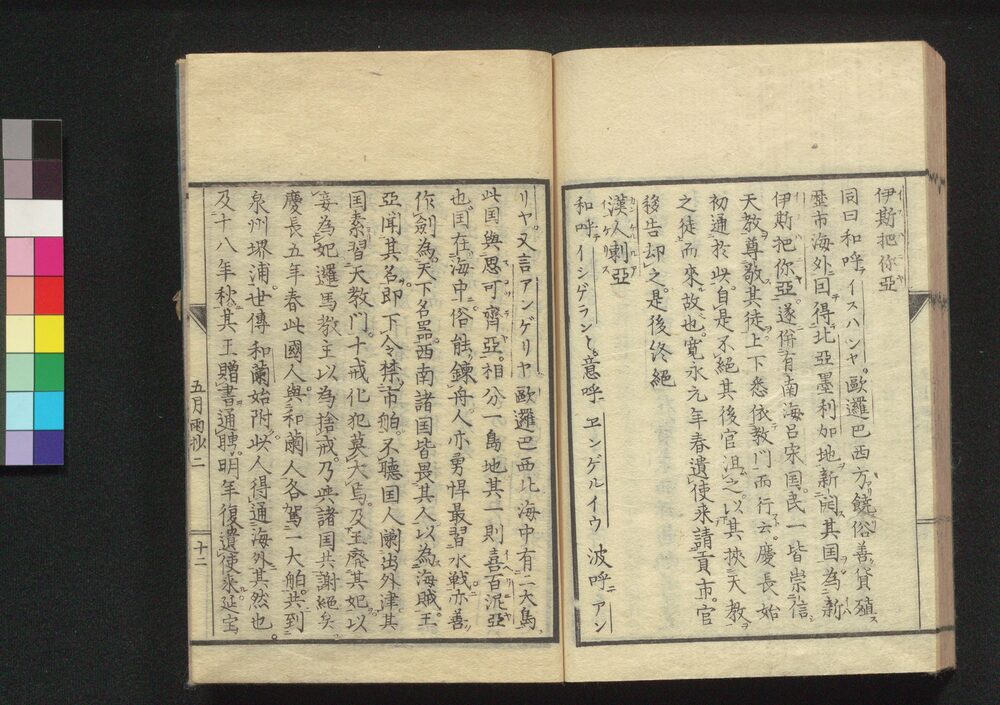 伊斯把你亞
同曰和呼イスハンヤ。歐邏巴西方饒俗善貸殖
歴市海外回得北亞墨利加地新開其国為新
伊斯把你亞遂併有南海呂宋国民一皆崇信
天教尊敬其徒上下悉依教門而行云慶長始
初通於此自是不絕其後官沮之以其挾天教
之徒而來故也寛永元年春遺使来請貢市官
後告却之是後終絕
漢人喇亞
和呼イシゲランド。意呼ヱンゲルイウ 波呼アン
リヤ。又言アンゲリヤ 歐邏巴西北海中有二大島
此国與思可齊亞相分一島地其一則喜百泥亞
也国在海中俗能鍊舟人亦勇悍最習水戦亦善
作劍為天下名器西南諸国皆畏其人以為海賊王
亞聞其名即下令禁市舶不聽国人闌出外津其
国素習天教門十戒化犯莫大焉及王廢其妃以
妾為妃邏馬教主以為捨戒乃與諸国共謝絕矣
慶長五年春此國人與和蘭人各駕一大舶共到
泉州堺浦世傳和蘭始附此人得通海外其然也
及十八年秋其王贈書通聘明年復遺使来延宝
五月雨抄二
十二